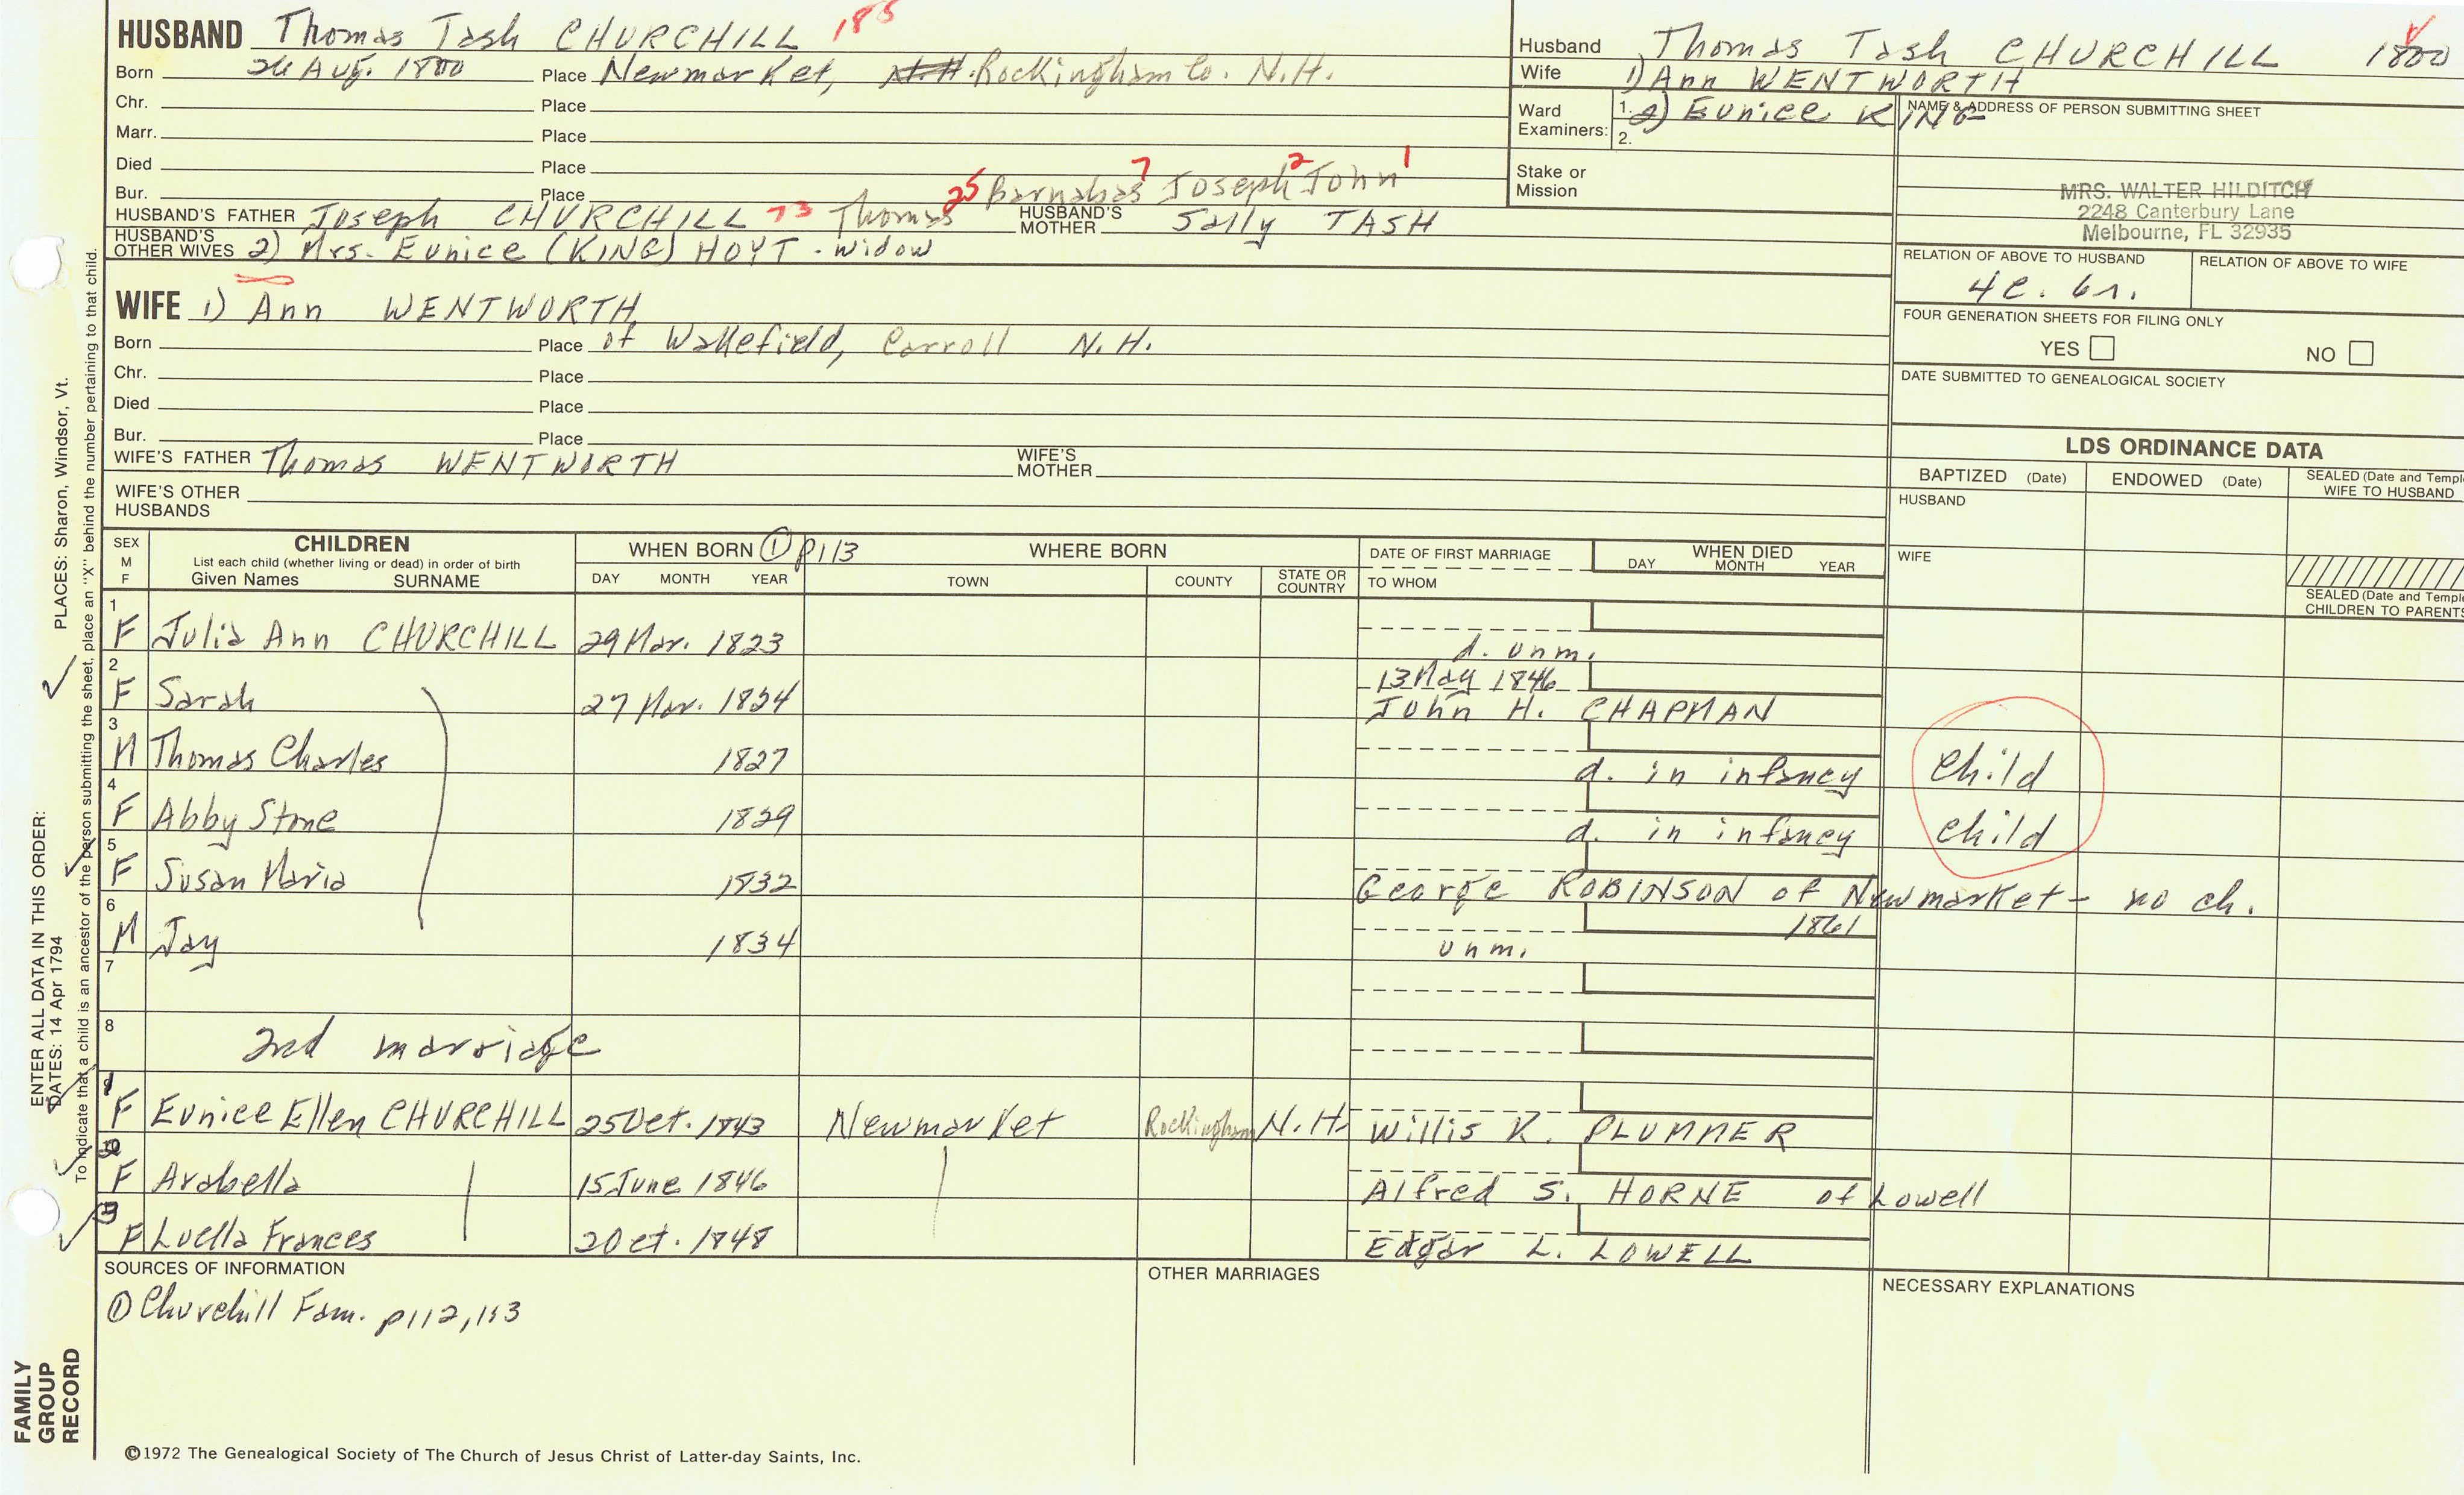 HUSBAND Thomas Tash CHURCHILL 188
Born 26 Aug. 1800 Place Newmarket, N.H. Rockingham Co. N.H.
Chr. Place
Marr. Place
Died Place
Bur. Place
25 Barnabas 7 Joseph 2 John 1
HUSBAND'S FATHER Joseph CHURCHILL 73 Thomas HUSBAND'S MOTHER Sally TASH
HUSBAND'S OTHER WIVES 2) Mrs. Eunice (KING) HOYT - widow
WIFE 1) Ann WENTWORTH
Born Place of Wakefield, Carroll N.H.
Chr. Place
Died Place
Bur. Place
WIFE'S FATHER Thomas WENTWORTH WIFE'S MOTHER
WIFE'S OTHER HUSBANDS
Husband Thomas Tash CHURCHILL 1800
Wife 1) Ann WENTWORTH
Ward Examiners: 1. 2) Eunice KING
2.
Stake or Mission
NAME & ADDRESS OF PERSON SUBMITTING SHEET
MRS. WALTER HILDITCH
2248 Canterbury Lane
Melbourne, FL 32935
RELATION OF ABOVE TO HUSBAND RELATION OF ABOVE TO WIFE
4c. 6r.
FOUR GENERATION SHEETS FOR FILING ONLY
YES NO
DATE SUBMITTED TO GENEALOGICAL SOCIETY
LDS ORDINANCE DATA
BAPTIZED (Date) ENDOWED (Date) SEALED (Date and Templ
WIFE TO HUSBAND
HUSBAND
WIFE
SEALED (Date and Templ
CHILDREN TO PARENTS
SEX M F CHILDREN WHEN BORN ① p113 WHERE BORN DATE OF FIRST MARRIAGE WHEN DIED
List each child (whether living or dead) in order of birth
Given Names SURNAME DAY MONTH YEAR TOWN COUNTY STATE OR COUNTRY TO WHOM DAY MONTH YEAR
1 F Julia Ann CHURCHILL 29 Mar. 1823 d. unm.
2 F Sarah 27 Mar. 1824 13 May 1846
John H. CHAPMAN
3 M Thomas Charles 1827 d. in infancy child
4 F Abby Stone 1829 d. in infancy child
5 F Susan Maria 1832 George ROBINSON of Newmarket - no ch.
6 M Jay 1834 unm. 1861
7
8 2nd marriage
F Eunice Ellen CHURCHILL 25 Oct. 1843 Newmarket Rockingham N.H. Willis K. PLUMMER
F Arabella 15 June 1846 Alfred S. HORNE of Lowell
F Luella Frances 2 Oct. 1848 Edgar L. LOWELL
SOURCES OF INFORMATION
① Churchill Fam. p112, 113
OTHER MARRIAGES
NECESSARY EXPLANATIONS
©1972 The Genealogical Society of The Church of Jesus Christ of Latter-day Saints, Inc.
FAMILY GROUP RECORD
ENTER ALL DATA IN THIS ORDER:
DATES: 14 Apr 1794 PLACES: Sharon, Windsor, Vt.
To indicate that a child is an ancestor of the person submitting the sheet, place an "X" behind the number pertaining to that child.